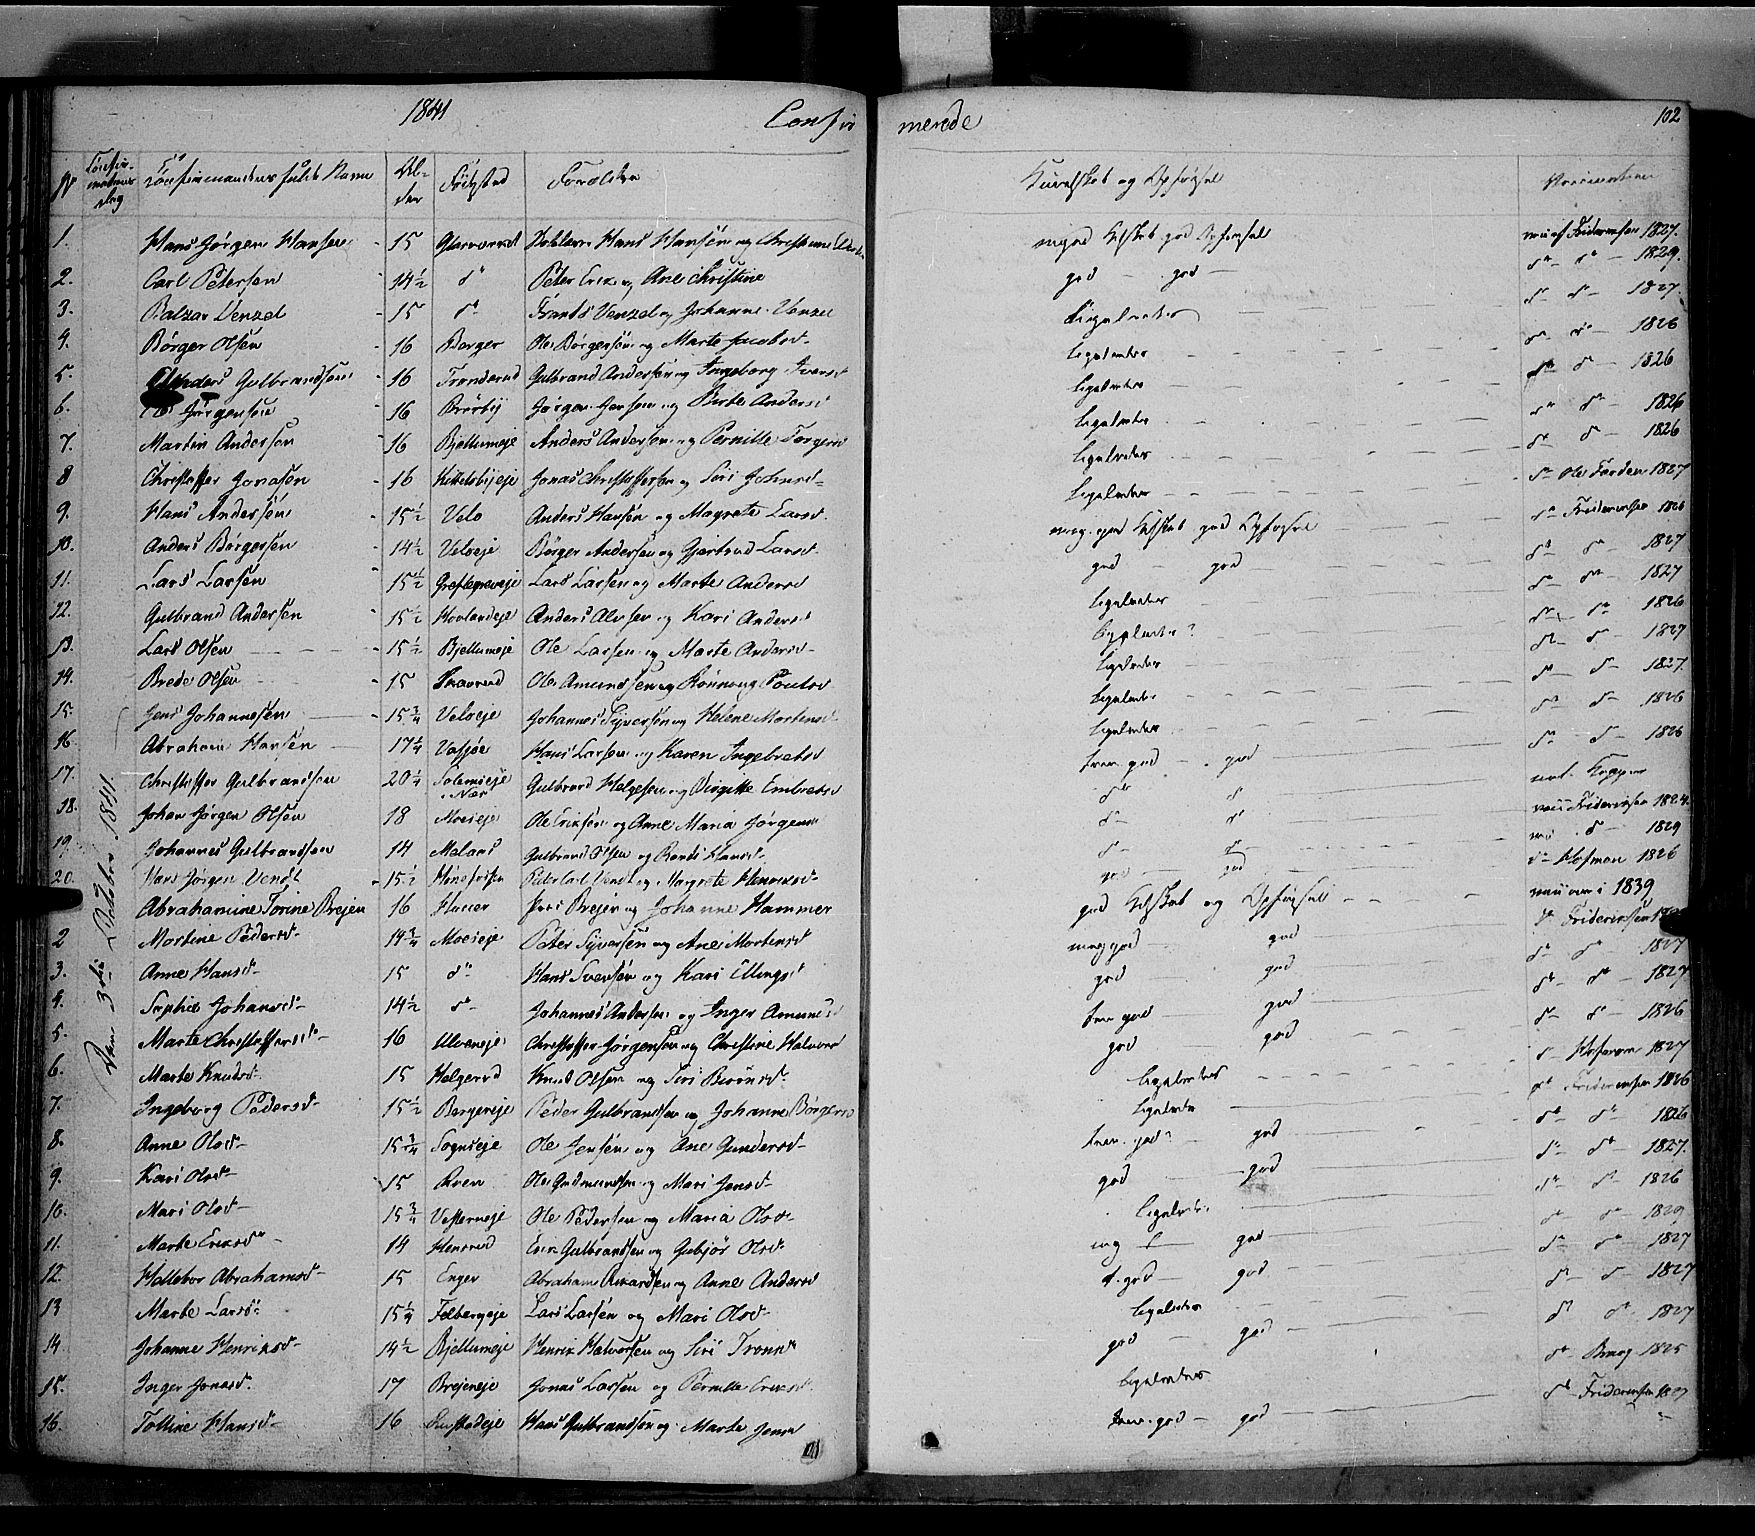 1841 Confir merede 102
N Confirmationens Dag Confirmandens fulde Navn Alder Fødested Forældre Kundskab og Opførsel Vaccination
Den 3die Octobr. 1841.
1. Hans Jørgen Hansen 15 Hans Hansen og Christiane meget god Opførsel Friderichsen 1827.
2. Carl Petersen 14½ do Peter og Ane Christine god god do do 1829.
3. Balzar Venzel 15 do Frants Venzel og Johanne Venzel Ligeledes do do 1827
4. Børger Olsen 16 Borger Ole Børgersen og Marte Jacobsd. Ligeledes do do 1826
5. Anders Gulbrandsen 16 Tronderud Gulbrand Andersen og Ingeborg Iversd Ligeledes do do 1826
6. Jørgensen 16 Brørby Jørgen Jensen og Birte Andersd Ligeledes do do 1826
7. Martin Andersen 16 Bjellumeje Anders Andersen og Pernille Torgersd Ligeledes do do 1826
8 Christoffer Jonasen 16 Kittelsbyeje Jonas Christoffersen og Siri Johnsd Ligeledes do Ole 1827
9. Hans Andersen 15½ Velo Anders Hansen og Magrete Larsd. meg. god Kdskab god Opførsel do Friderichsen 1826
10. Anders Børgersen 14½ Veloeje Børger Andersen og Gjertrud Larsd. god god do do 1827
11. Lars Larsen 15½ Lars Larsen og Marte Andersd Ligeledes do do 1827
12. Gulbrand Andersen 15½ Hovlandeje Anders Olesen og Kari Andersd Ligeledes do do 1826
13. Lars Olsen 15½ Bjellumeje Ole Larsen og Marte Andersd Ligeledes do do 1827
14. Brede Olsen 15 Ole Amundsen og Rønnaug Poulsd Ligeledes do do 1827.
15. Jens Johannesen 15¾ Veloeje Johannes Syversen og Helene Mortensd Ligeledes do do 1826
16 Abraham Hansen 17¼ Vasjøe Hans Larsen og Karen Ingebretsd temm. god god do do 1826
17. Christoffer Gulbrandsen 20¼ Solemseje Gulbrand Helgesen og Birgitte Embretsd do do nat. Kopper
18. Johan Jørgen Olsen 18 Moeseje Ole Eriksen og Anne Maria Jørgensd do do Friderichsen 1824.
19. Johannes Gulbrandsen 14 Gulbrand Olsen og Randi Hansd. do do do 1829
20. Hans Jørgen Vendt 15½ Hønefossen Peter Carl Vendt og Margrete Henriksd. god god do Hofman 1826
Abrahamine Torine Brejen 16 Peter Brejen og Johanne Hammer god Kdskab og Opførsel 1839
2 Mortine Pedersd. 14¾ Moeseje Peter Syversen og Ane Mortensd meg god god do Friderichsen
3. Anne Hansd. 15 do Hans Svensen og Kari Ellingsd god god do do 1827
4. Sophie Johansd. 14½ do Johannes Andersen og Inger Amundsd tem god god do do 1827
5. Marte Christoffersd. 16 Christoffer Jørgensen og Christine Halvorsd god god do do 1826
6. Marte Knudsd. 15 Helgerud Knud Olsen og Siri Ligeledes do Hofman 1827
7. Ingeborg Pedersd. 15½ Borgereje Peder Gulbrandsen og Johanne Børgersd Ligeledes do Friderichsen 1826
8. Anne Olsd. 15¾ Sognseje Ole Jensen og Ane Gundersd. tem. god god do do 1826
9. Kari Olsd. 15 Roen Ole Gudmundsen og Mari Jensd. god god do do 1827.
10. Mari Olsd. 15¾ Vesterneje Ole Pedersen og Maria Olsd. Ligeledes do do 1826
11. Marte Eriksd. 14 Hensrud Erik Gulbrandsen og Gubjør Olsd. meg god do do 1829
12. Hallebor Abrahamsd. 15 Enger Abraham Rikardsen og Anne Andersd t. god god do do 1827
13 Marte Larsd. 15¼ Felbergeje Lars Larsen og Mari Olsd. Ligeledes do do 1827
14. Johanne Henriksd. 14½ Bjellumeje Henrik Halvorsen og Siri Tronsd god god do do 1827
15. Inger Jonasd. 17 Brejeneje Jonas Larsen og Pernille Eriksd. Ligeledes do 1825
16. Tolline Hansd. 16 Hans Gulbrandsen og Marte Jensd tem. god god do Friderichsen 1827